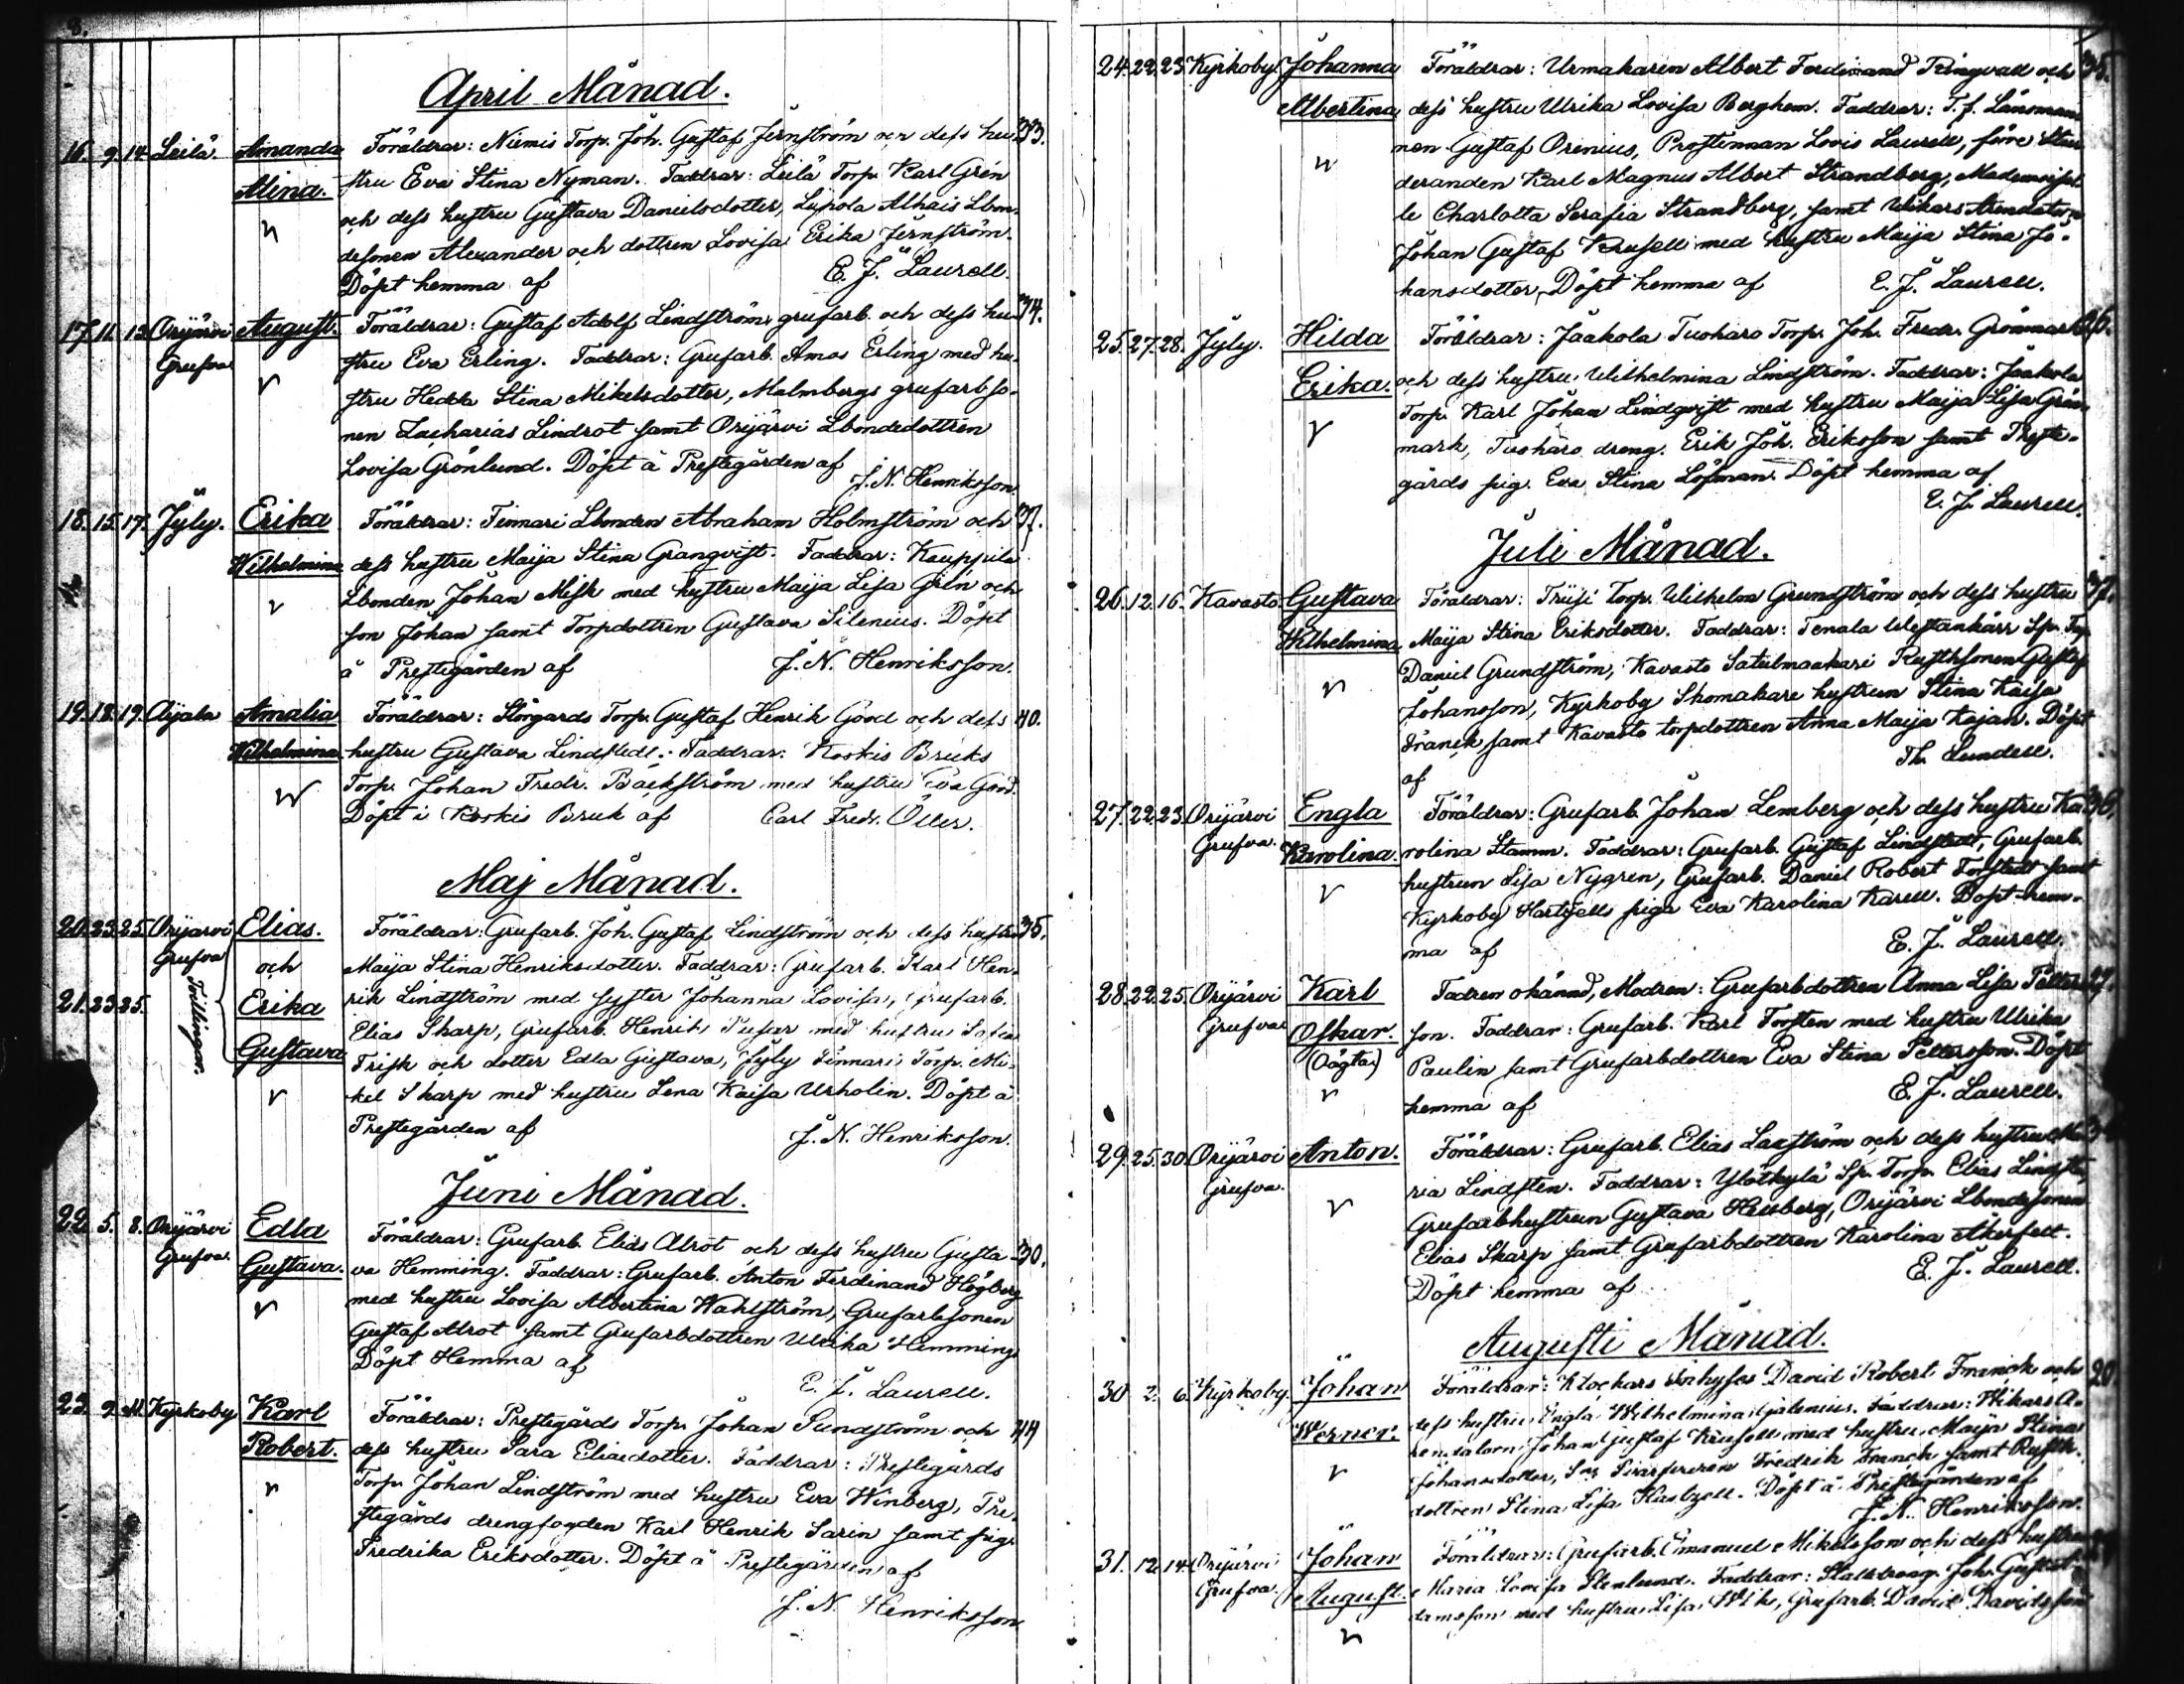 8.
April Månad.
16. 9. 14. Leilä. Amanda Föräldrar: Niemis Torp. Joh. Gustaf Jernström och dess hu- 33.
Alina. stru Eva Stina Nyman. Faddrar: Leilä Torp. Karl Grén
och dess hustru Gustava Danielsdotter, Lupola Alhais Lbon-
desonen Alexander och dottren Lovisa Erika Jernström.
Döpt hemma af E. J. Laurell.
17. 11. 13. Orijärvi August. Föräldrar: Gustaf Adolf Lindström grufarb. och dess hu- 34.
Grufva stru Eva Erling. Faddrar: Grufarb. Amos Erling med hu-
stru Hedda Stina Mikelsdotter, Malmbergs grufarbso-
nen Zacharias Lindrot samt Orijärvi Lbondedottren
Lovisa Grönlund. Döpt å Prestegården af
J. N. Henriksson.
18. 15. 17. Jyly. Erika Föräldrar: Tinnari Lbonden Abraham Holmström och 37.
Wilhelmina dess hustru Maija Stina Granqvist. Faddrar: Kauppila
Lbonden Johan Misk med hustru Maija Lisa Grén och
son Johan samt Torpdottren Gustava Silenius. Döpt
å Prestegården af J. N. Henriksson.
19. 18. 19. Aijala Amalia Föräldrar: Storgards Torp. Gustaf Henrik Good och dess 40.
Wilhelmina hustru Gustava Lindstedt. Faddrar: Koskis Bruks
Torp. Johan Fredr. Bäckström med hustru Eva Good.
Döpt i Koskis Bruk af Carl Fredr. Öller.
Maj Månad.
20. 23. 25. Orijärvi Elias. Föräldrar: Grufarb. Joh. Gustaf Lindström och dess hustru 35.
Grufva och Maija Stina Henriksdotter. Faddrar: Grufarb. Karl Hen-
21. 23. 25. Tvillingar. Erika rik Lindström med syster Johanna Lovisa, Grufarb.
Elias Skarp, Grufarb. Henrik Pusar med hustru Sofia
Gustava Frisk och dotter Edla Gustava, Jyly Tinnari Torp. Mi-
kel Skarp med hustru Lena Kaisa Urholin. Döpt å
Prestegården af J. N. Henriksson.
Juni Månad.
22. 5. 8. Orijärvi Edla Föräldrar: Grufarb. Elias Alrot och dess hustru Gusta- 30.
Grufva. Gustava. va Hemming. Faddrar: Grufarb. Anton Ferdinand Högberg
med hustru Lovisa Albertina Wahlström, Grufarbsonen
Gustaf Alrot samt Grufarbdottren Ulrika Hemming.
Döpt Hemma af
E. J. Laurell.
23. 9. 11. Kyrkoby Karl Föräldrar: Prestegårds Torp. Johan Sundström och 44
Robert. dess hustru Sara Eliaedotter. Faddrar: Prestegårds
Torp. Johan Lindström med hustru Eva Winberg, Pre-
stegårds drengfogden Karl Henrik Sarin samt pig.
Fredrika Eriksdotter. Döpt å Prestegården af
J. N. Henriksson
24. 22. 23. Kyrkoby. Johanna Föräldrar: Urmakaren Albert Ferdinand Ringvall och 35.
Albertina dess hustru Ulrika Lovisa Berghem. Faddrar: T. f. Länsman-
nen Gustaf Orenius, Prostinnan Lovis Laurell, före Stu-
deranden Karl Magnus Albert Strandberg, Mademoisel-
le Charlotta Serafia Strandberg, samt Wikars Arendatorn
Johan Gustaf Krusell med hustru Maija Stina Jo-
hansdotter. Döpt hemma af E. J. Laurell.
25. 27. 28. Jyly. Hilda Föräldrar: Jaakola Tuoharo Torp. Joh. Fredr. Grönmark 36.
Erika. och dess hustru Wilhelmina Lindström. Faddrar: Jaakola
Torp. Karl Johan Lindqvist med hustru Maija Lisa Grön-
mark, Tuoharo dreng. Erik Joh. Eriksson samt Preste-
gårds pig. Eva Stina Löfman. Döpt hemma af
E. J. Laurell.
Juli Månad.
26. 12. 16. Kavasto Gustava Föräldrar: Trüsi Torp. Wilhelm Grundström och dess hustru 37.
Wilhelmina Maija Stina Eriksdotter. Faddrar: Tenala Westankärr Sp. Torp
Daniel Grundström, Kavasto Satulmaakari Rusthsonen Gustaf
Johansson, Kyrkoby Skomakare hustrun Stina Kaisa
Franck samt Kavasto torpdottren Anna Maija Kajan. Döpt
af Th. Lundell.
27. 22. 23. Orijärvi Engla Föräldrar: Grufarb. Johan Lemberg och dess hustru Ka- 36.
Grufva. Karolina. rolina Stamm. Faddrar: Grufarb. Gustaf Lindstedt, Grufarb.
hustrun Lisa Nygren, Grufarb. Daniel Robert Forstedt samt
Kyrkoby Hartzells piga Eva Karolina Karell. Döpt hem-
ma af E. J. Laurell.
28. 22. 25. Orijärvi Karl Fadren okännd, Modren: Grufarbdottren Anna Lisa Petters- 27.
Grufva Oskar. son. Faddrar: Grufarb. Karl Forsten med hustru Ulrika
(Oägta) Paulin samt Grufarbdottren Eva Stina Pettersson. Döpt
hemma af E. J. Laurell.
29. 25. 30. Orijärvi Anton. Föräldrar: Grufarb. Elias Laxström och dess hustru Ma-
Grufva. ria Lindsten. Faddrar: Ylötkylä Sp. Torp. Elias Lindsten,
Grufarbhustrun Gustava Heuberg, Orijärvi Lbondesonen
Elias Skarp samt Grufarbdottren Karolina Åkerfelt.
Döpt hemma af E. J. Laurell.
Augusti Månad.
30. 2. 6. Kyrkoby. Johan Föräldrar: Klockars Inhyses David Robert Franck och 20.
Werner. dess hustru Engla Wilhelmina Galenius. Faddrar: Wikars A-
rendatorn Johan Gustaf Krusell med hustru Maija Stina
Johansdotter, Fredrik Franck samt Rusth.
dottren Stina Lisa Hasbzell. Döpt å Prestegården af
J. N. Henriksson.
31. 12. 14. Orijärvi Johan Föräldrar: Grufarb. Emanuel Mikelsson och dess hustru
Grufva. August. Maria Lovisa Stenlund. Faddrar: Stalldreng. Joh. Gustaf A-
damsson med hustru Lisa Wik, Grufarb. David Davidsson